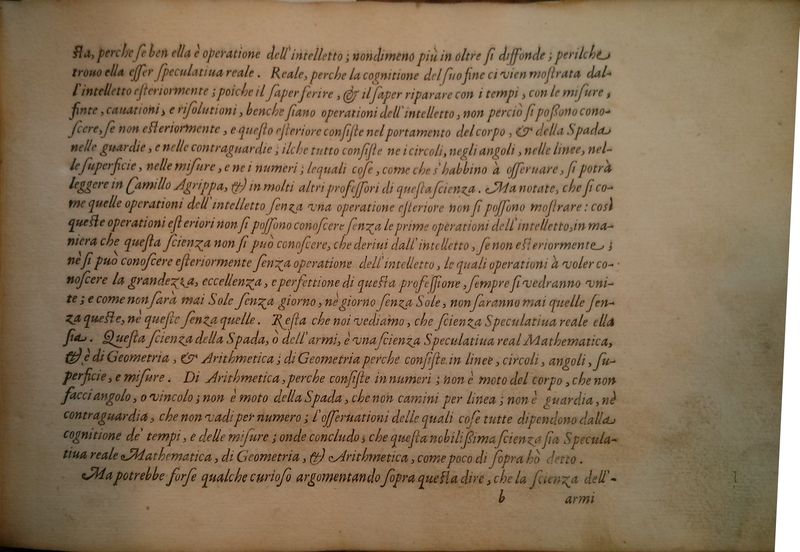 sta, perche se ben ella è operatione dell'intelletto; nondimeno più in oltre si diffonde; perilche
trouo ella esser speculatiua reale. Reale, perche la cognitione del suo fine ci vien mostrata dal-
l'intelletto esteriormente; poiche il saper ferire, & il saper riparare con i tempi, con le misure,
finte, cauationi, e risolutioni, benche siano operationi dell'intelletto, non perciò si possono cono-
scere, se non esteriormente, e questo esteriore consiste nel portamento del corpo, & della Spada
nelle guardie, e nelle contraguardie; ilche tutto consiste ne i circoli, negli angoli, nelle linee, nel-
le superficie, nelle misure, e ne i numeri; lequali cose, come che s'habbino à osseruare, si potrà
leggere in Camillo Agrippa, & in molti altri professori di questa scienza. Ma notate, che si co-
me quelle operationi dell'intelletto senza vna operatione esteriore non si possono mostrare: così
queste operationi esteriori non si possono conoscere senza le prime operationi dell'intelletto, in ma-
niera che questa scienza non si può conoscere, che deriui dall'intelletto, se non esteriormente;
nè si può conoscere esteriormente senza operatione dell'intelletto, le quali operationi à voler co-
noscere la grandezza, eccellenza, e perfettione di questa professione, sempre si vedranno vni-
te; e come non sarà mai Sole senza giorno, nè giorno senza Sole, non saranno mai quelle sen-
za queste, nè queste senza quelle. Resta che noi vediamo, che scienza Speculatiua reale ella
sia. Questa scienza della Spada, ò dell'armi, è vna scienza Speculatiua real Mathematica,
& è di Geometria, & Arithmetica; di Geometria perche consiste in linee, circoli, angoli, su-
perficie, e misure. Di Arithmetica, perche consiste in numeri; non è moto del corpo, che non
facci angolo, o vincolo; non è moto della Spada, che non camini per linea; non è guardia, nè
contraguardia, che non vadi per numero; l'osseruationi delle quali cose tutte dipendono dalla
cognitione de' tempi, e delle misure; onde concludo, che questa nobilissima scienza sia Specula-
tiua reale Mathematica, di Geometria, & Arithmetica, come poco di sopra hò detto.
Ma potrebbe forse qualche curioso argomentando sopra questa dire, che la scienza dell'-
b armi